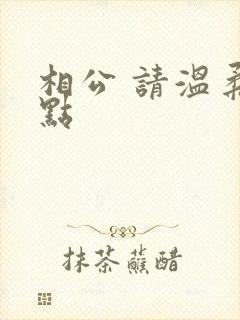 相公 請溫柔
點
抹茶蘸醋